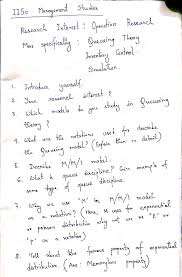 IISc Management Studies
Research Interest: Operations Research
More specifically: Queueing Theory
Inventory Control
Simulation
1. Introduce yourself.
2. Your research interest?
3. Which models to you study in Queueing
theory?
4. What are the notations used for describe
the Queueing model? (Explain them in detail)
5. Describe M/M/1 model.
6. What is queue discipline? Give example of
some type of queue discipline.
7. Why we use 'M' in M/M/1 model
as notation? (Here, M uses for exponential
or poisson distribution why not we use 'E' or
'P' as a notation)
8. Tell about the famous property of exponential
distribution. (Ans: Memoryless property)